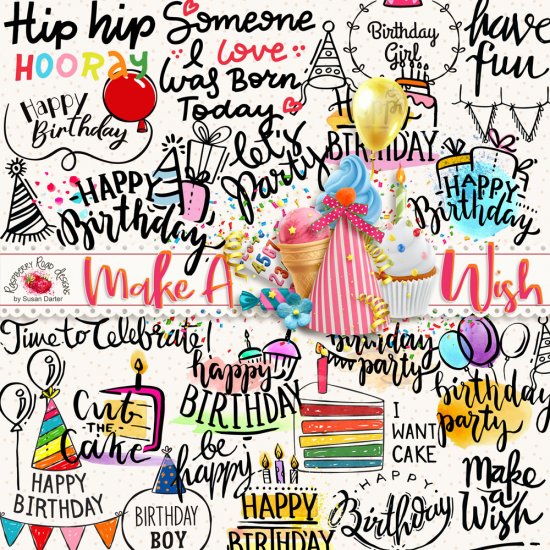 Hip hip
HOORAY
Someone
I Love
Was Born
Today
Birthday
Girl
have
fun
Happy
Birthday
let's
Party
BIRTHDAY
HAPPY
Birthday
HAPPY
Birthday
RASPBERRY ROAD DESIGNS
by Susan Darter
Make A Wish
Time to Celebrate
happy
BIRTHDAY
Birthday
party
birthday
party
Cut
-THE-
Cake
I
WANT
CAKE
be
happy
HAPPY
BIRTHDAY
BIRTHDAY
BOY
HAPPY
BIRTHDAY
HAPPY
Birthday
Make
a
Wish